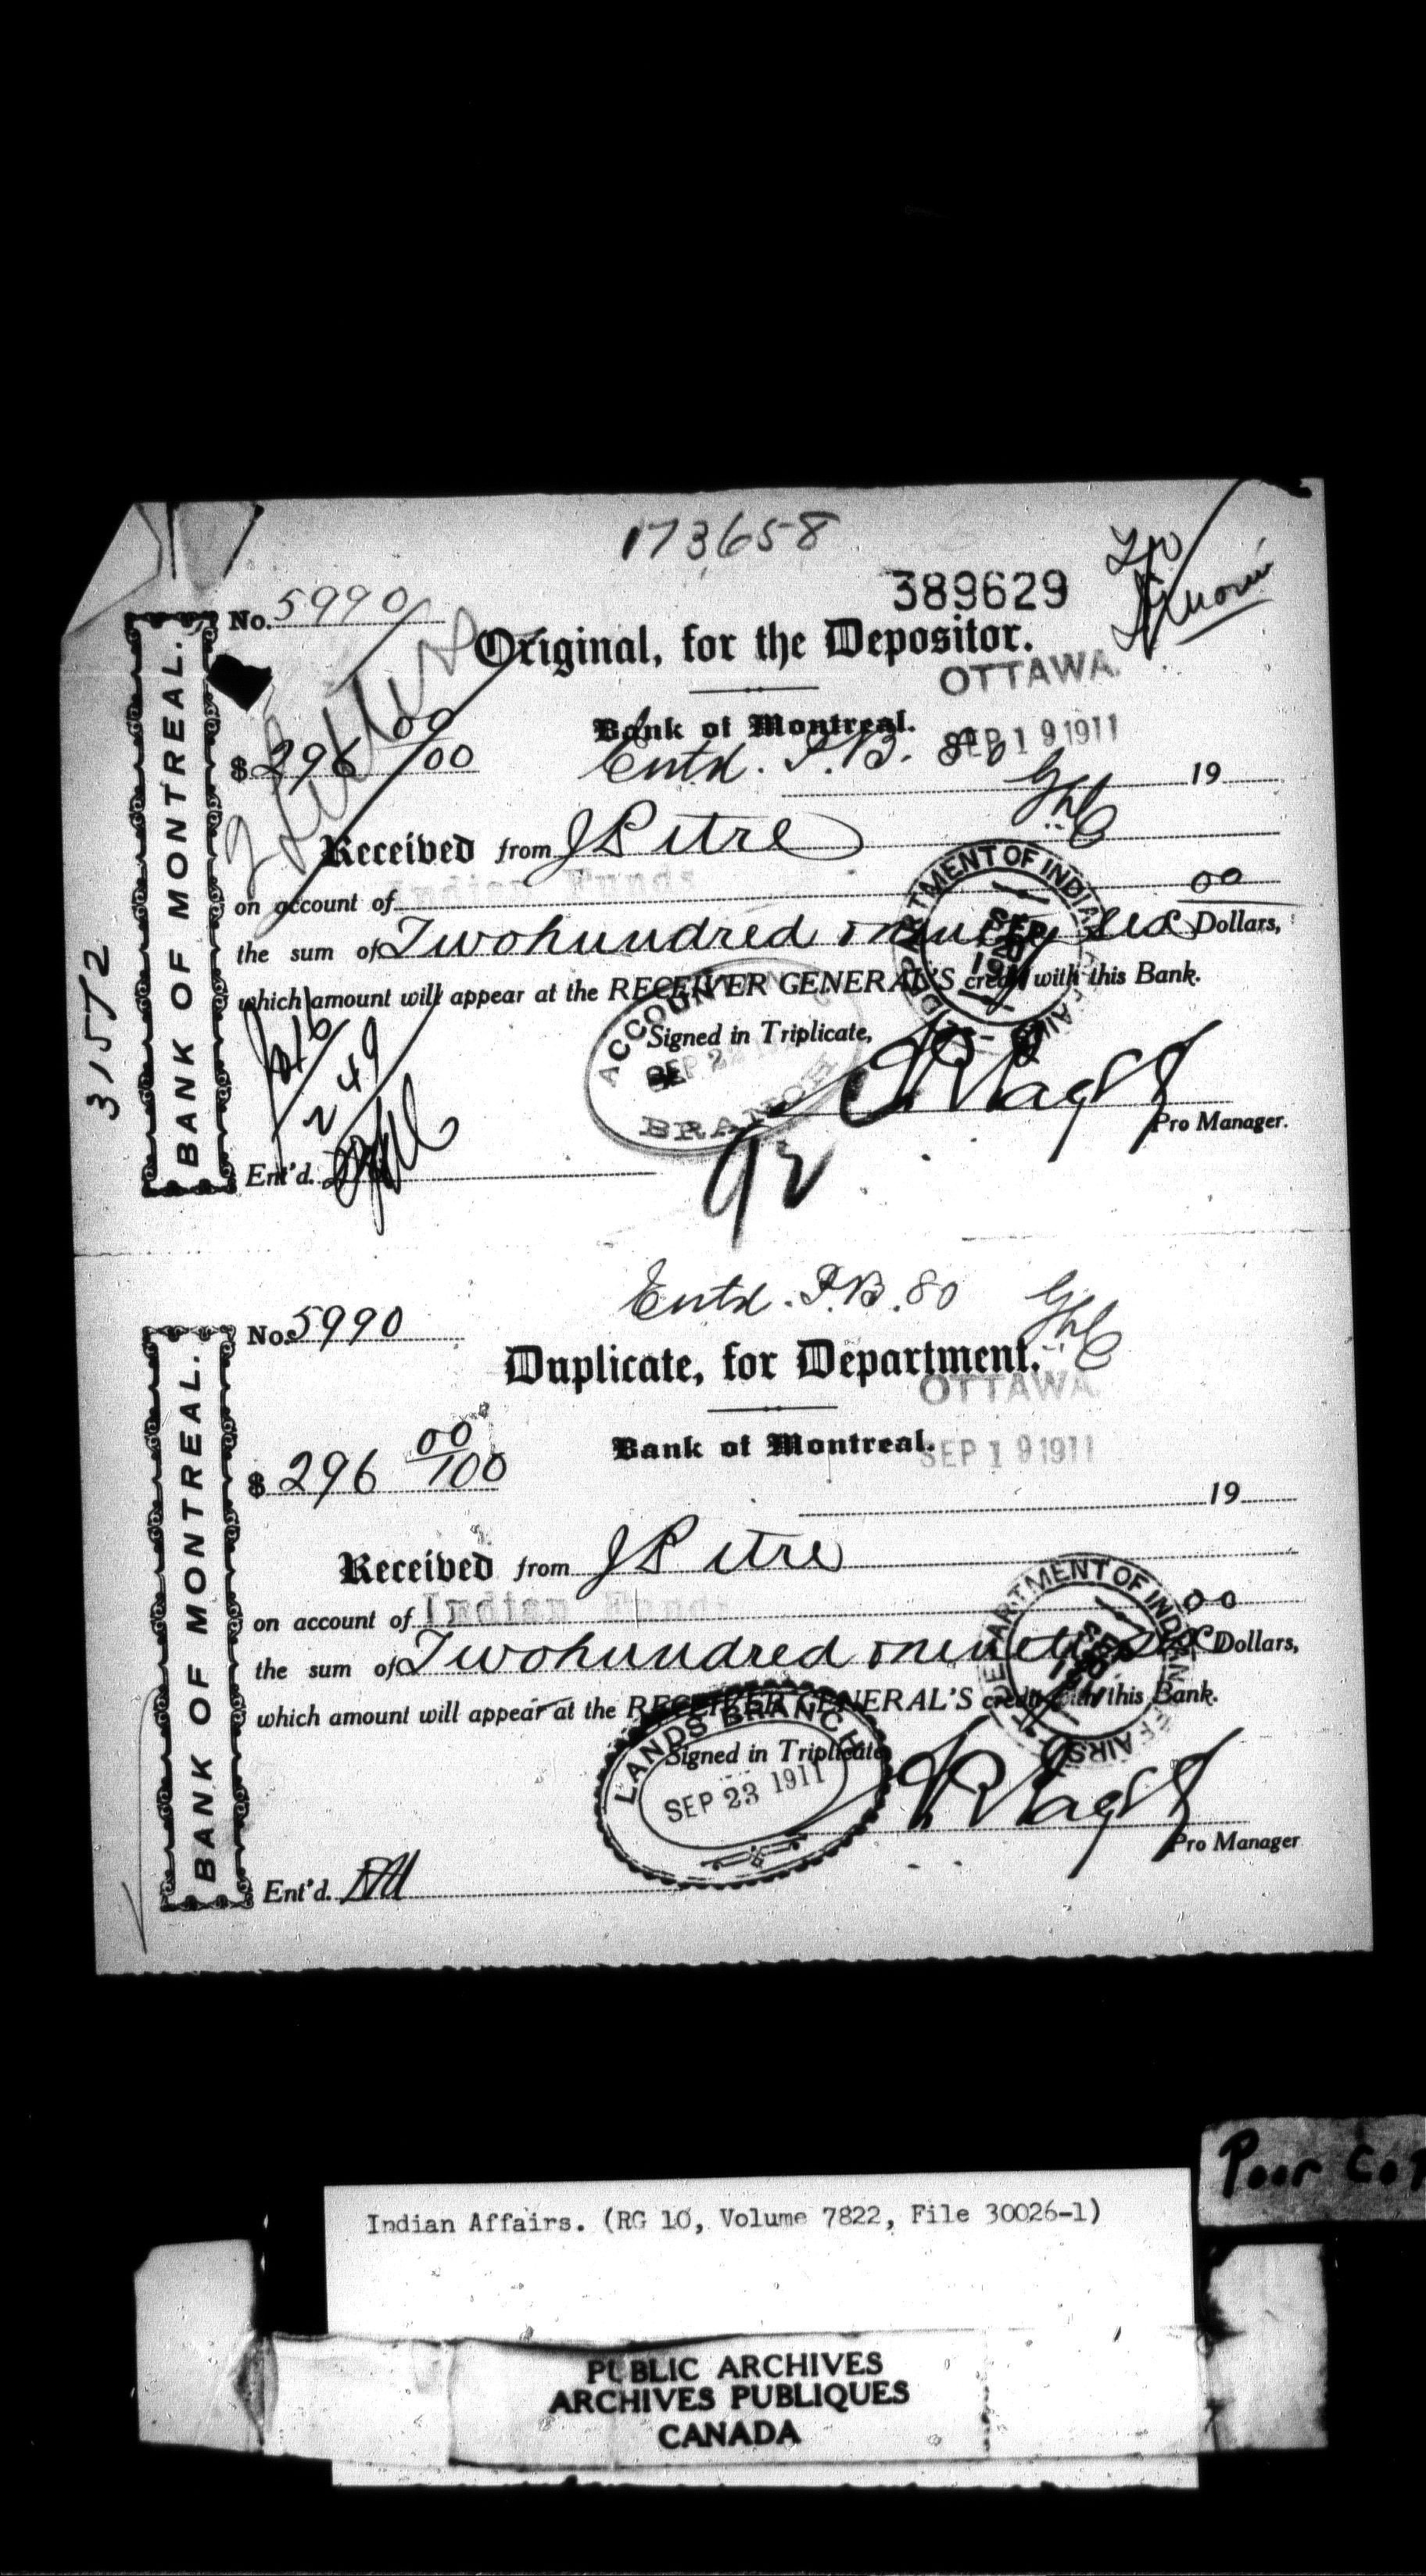 173658
389629
No. 5990
Original, for the Depositor.
OTTAWA
Bank of Montreal.
SEP 19 1911
$ 296 00/100
Entd. P.B. 80
19
Received from J Pitre
on account of Indian Funds
00
the sum of Two hundred ninety six Dollars,
which amount will appear at the RECEIVER GENERAL'S credit with this Bank.
Signed in Triplicate,
Pro Manager.
Ent'd.
BANK OF MONTREAL.
31572
DEPARTMENT OF INDIAN AFFAIRS
SEP 20 1911
ACCOUNTANT
SEP 22
BRANCH
92
Entd. P.B. 80
No. 5990
Duplicate, for Department.
OTTAWA
Bank of Montreal.
SEP 19 1911
$ 296 00/100
19
Received from J Pitre
on account of Indian Funds
00
the sum of Two hundred ninety six Dollars,
which amount will appear at the RECEIVER GENERAL'S credit with this Bank.
Signed in Triplicate,
Pro Manager
Ent'd.
BANK OF MONTREAL.
DEPARTMENT OF INDIAN AFFAIRS
LANDS BRANCH
SEP 23 1911
Poor Cop
Indian Affairs. (RG 10, Volume 7822, File 30026-1)
PUBLIC ARCHIVES
ARCHIVES PUBLIQUES
CANADA